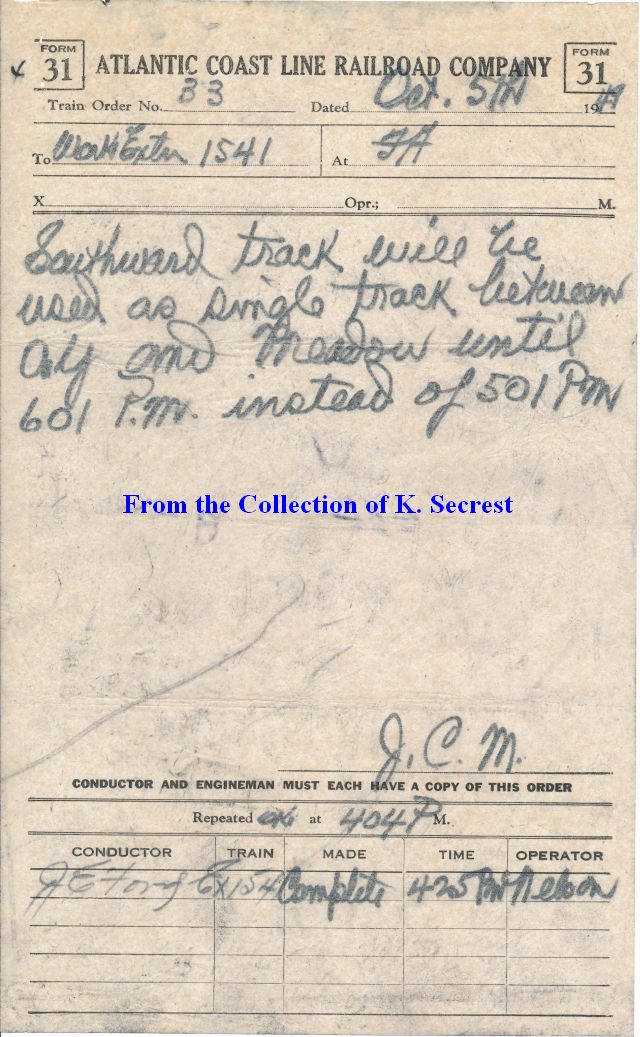 FORM 31 ATLANTIC COAST LINE RAILROAD COMPANY FORM 31
Train Order No. 33 Dated Oct. 5th 19
To Work Extra 1541 At
X Opr.; M.
Southward track will be
used as single track between
and Meadow until
601 P.M. instead of 501 PM
From the Collection of K. Secrest
J. C. M.
CONDUCTOR AND ENGINEMAN MUST EACH HAVE A COPY OF THIS ORDER
Repeated at 404 P M.
CONDUCTOR TRAIN MADE TIME OPERATOR
Ex 154 Complete 425 PM Nelson